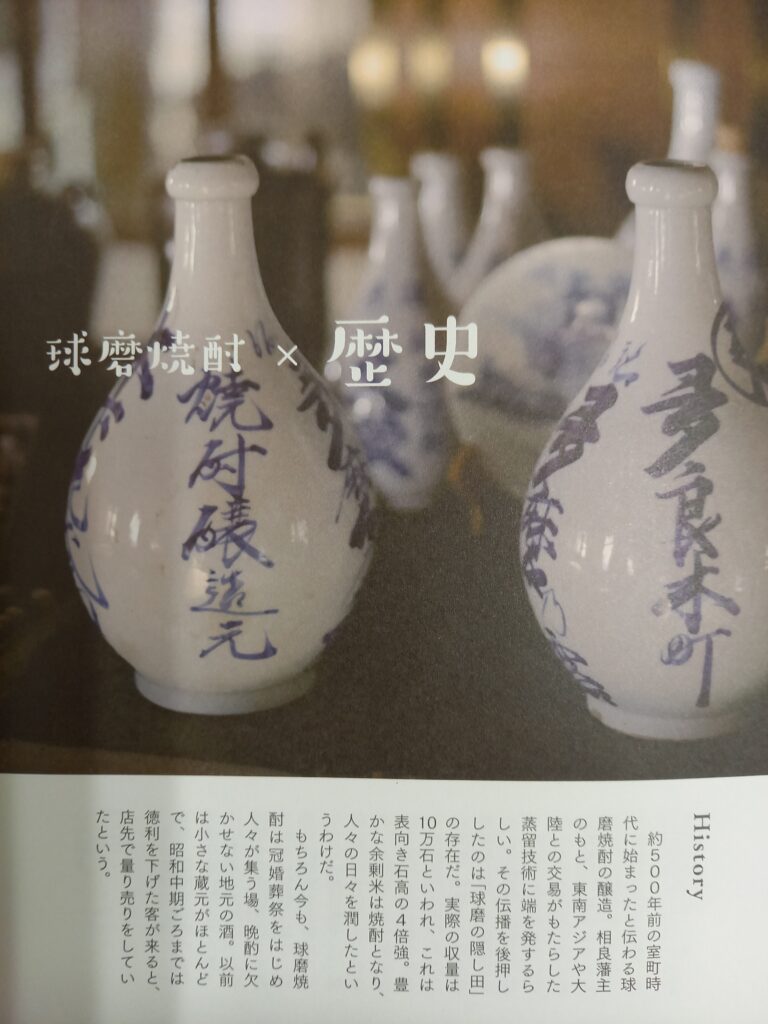 球磨焼酎 × 歴史
焼酎醸造元
多良木町
History
約500年前の室町時
代に始まったと伝わる球
磨焼酎の醸造。相良藩主
のもと、東南アジアや大
陸との交易がもたらした
蒸留技術に端を発するら
しい。その伝播を後押し
したのは「球磨の隠し田」
の存在だ。実際の収量は
10万石といわれ、これは
表向き石高の4倍強。豊
かな余剰米は焼酎となり、
人々の日々を潤したとい
うわけだ。
もちろん今も、球磨焼
酎は冠婚葬祭をはじめ
人々が集う場、晩酌に欠
かせない地元の酒。以前
は小さな蔵元がほとんど
で、昭和中期ごろまでは
徳利を下げた客が来ると、
店先で量り売りをしてい
たという。